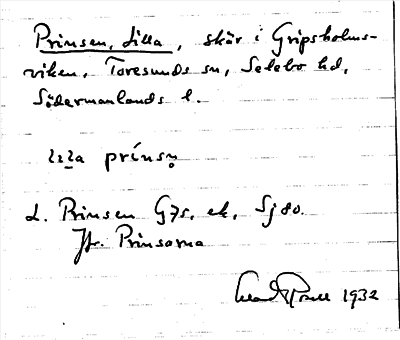 Prinsen, Lilla, skär i Gripsholms-
viken, Toresunds sn, Selebo hd,
Södermanlands l.
prínsn̥
L. Prinsen G75, ek, Sj 80.
Jfr. Prinsarna
1932